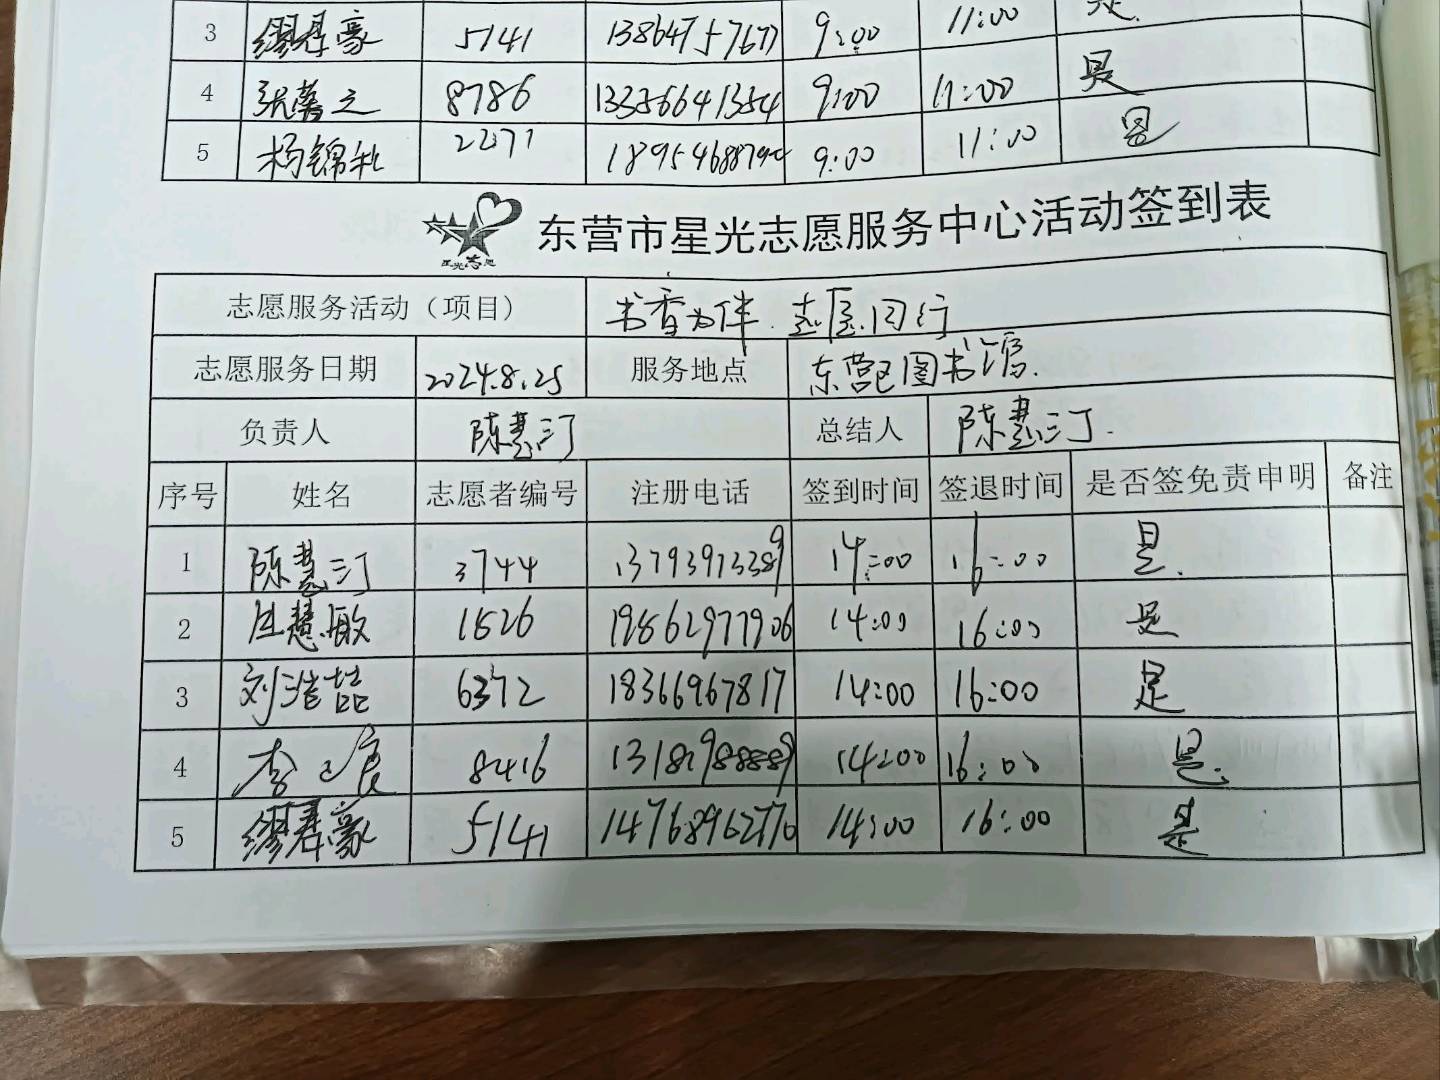 3 缪昇豪 5141 13864757677 9:00 11:00 是.
4 张馨之 8786 13356641354 9:00 11:00 是
5 杨锦礼 2271 18954688794 9:00 11:00 是
星光志愿
东营市星光志愿服务中心活动签到表
志愿服务活动（项目） 书香为伴.志愿同行
志愿服务日期 2024.8.25 服务地点 东营区图书馆.
负责人 陈慧汀 总结人 陈慧汀.
序号 姓名 志愿者编号 注册电话 签到时间 签退时间 是否签免责申明 备注
1 陈慧汀 3744 14:00 16:00 是.
2 慧敏 1526 19862977906 14:00 16:00 是
3 刘浩喆 6372 18366967817 14:00 16:00 是
4 李 8416 14:00 16:00 是.
5 缪昇豪 5141 14768962770 14:00 16:00 是